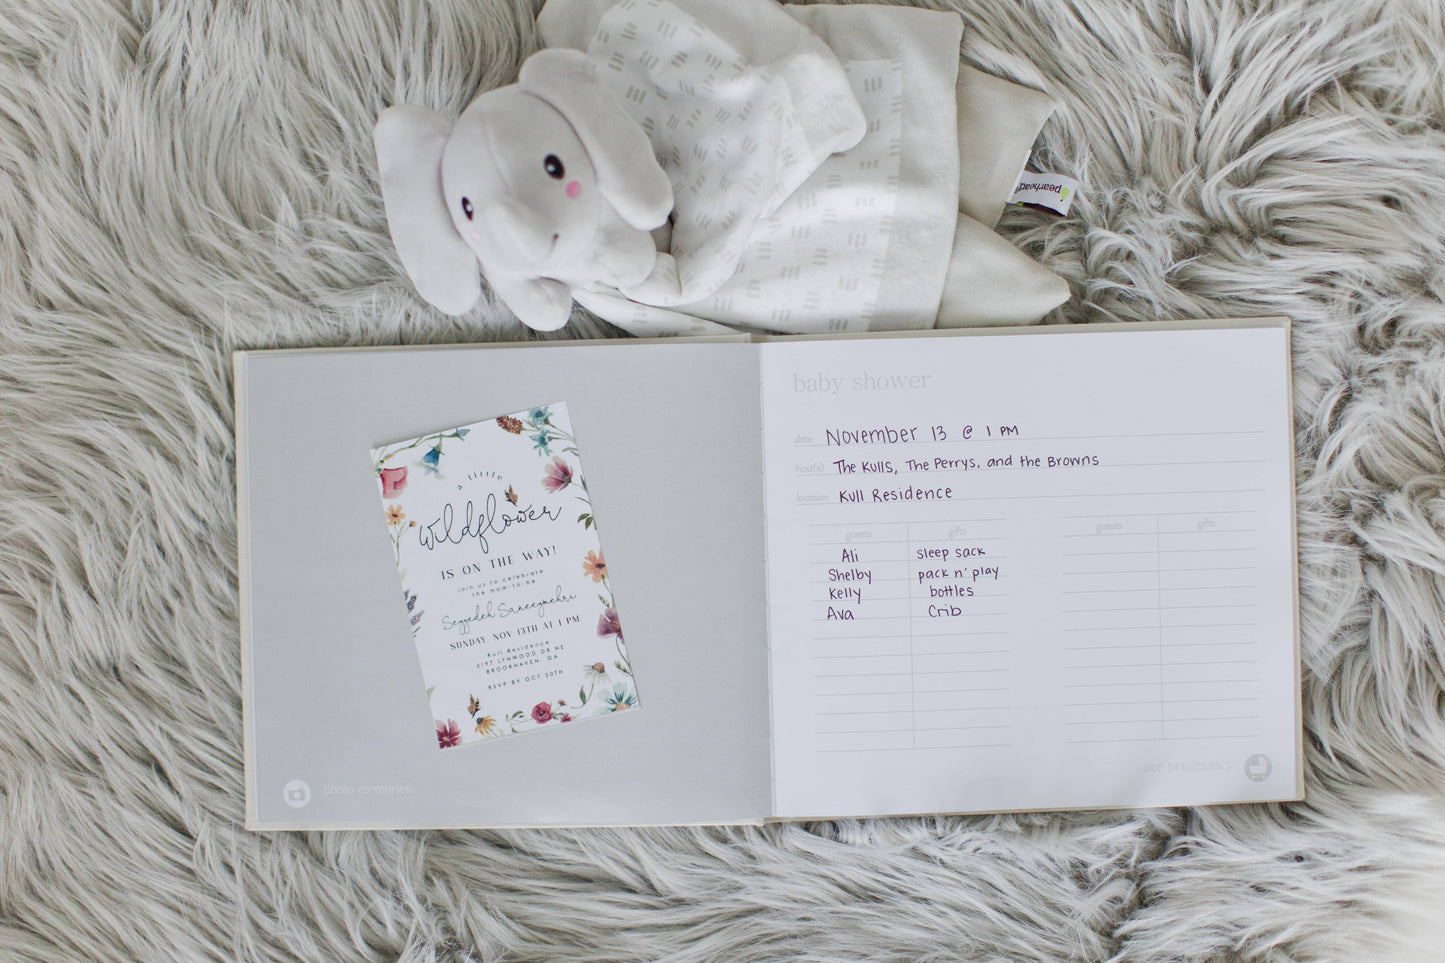 pearhead
a little
wildflower
IS ON THE WAY!
join us to celebrate
the mom-to-be
Seyyedeh Saneeymehri
SUNDAY NOV 13TH AT 1 PM
Kull Residence
3197 LYNWOOD DR NE
BROOKHAVEN, GA
RSVP BY OCT 30TH
photo memories
baby shower
date November 13 @ 1 PM
host(s) The Kulls, The Perrys, and the Browns
location Kull Residence
guests gifts guests gifts
Ali sleep sack
Shelby pack n' play
Kelly bottles
Ava Crib
our pregnancy